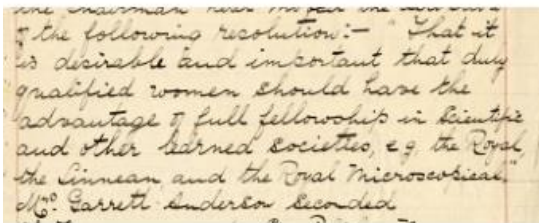 the Chairman
of the following resolution:— "That it
is desirable and important that duly
qualified women should have the
advantage of full fellowship in Scientific
and other learned societies, e.g. the Royal,
the Linnean and the Royal Microscopical."
Mrs. Garrett Anderson seconded